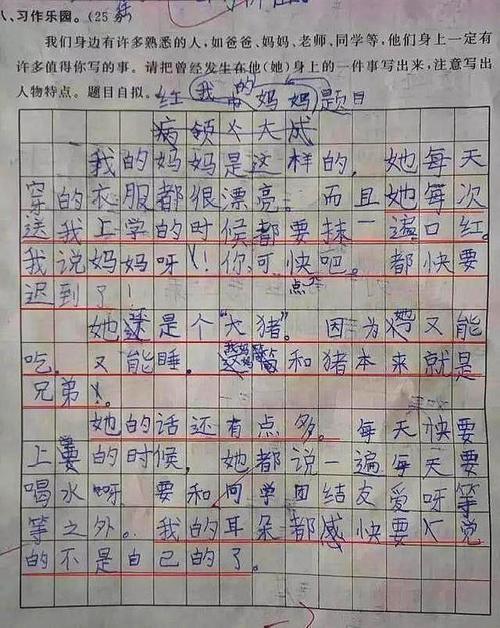 、习作乐园。(25
我们身边有许多熟悉的人,如爸爸、妈妈、老师、同学等,他们身上一定有
许多值得你写的事。请把曾经发生在他(她)身上的一件事写出来,注意写出
人物特点。题目自拟。
我的妈妈 题目
我的妈妈是这样的,她每天
穿的衣服都很漂亮。而且她每次
送我上学的时候都要抹一遍口红。
我说妈妈呀!你可快点吧。都快要
迟到了!
她是个“大猪”。因为她又能
吃。又能睡。和猪本来就是
兄弟。
她的话还有点多。每天快要
上学的时候,她都说一遍每天要
喝水呀要和同学团结友爱呀等
等之外。我的耳朵都感快要觉
的不是自己的了。